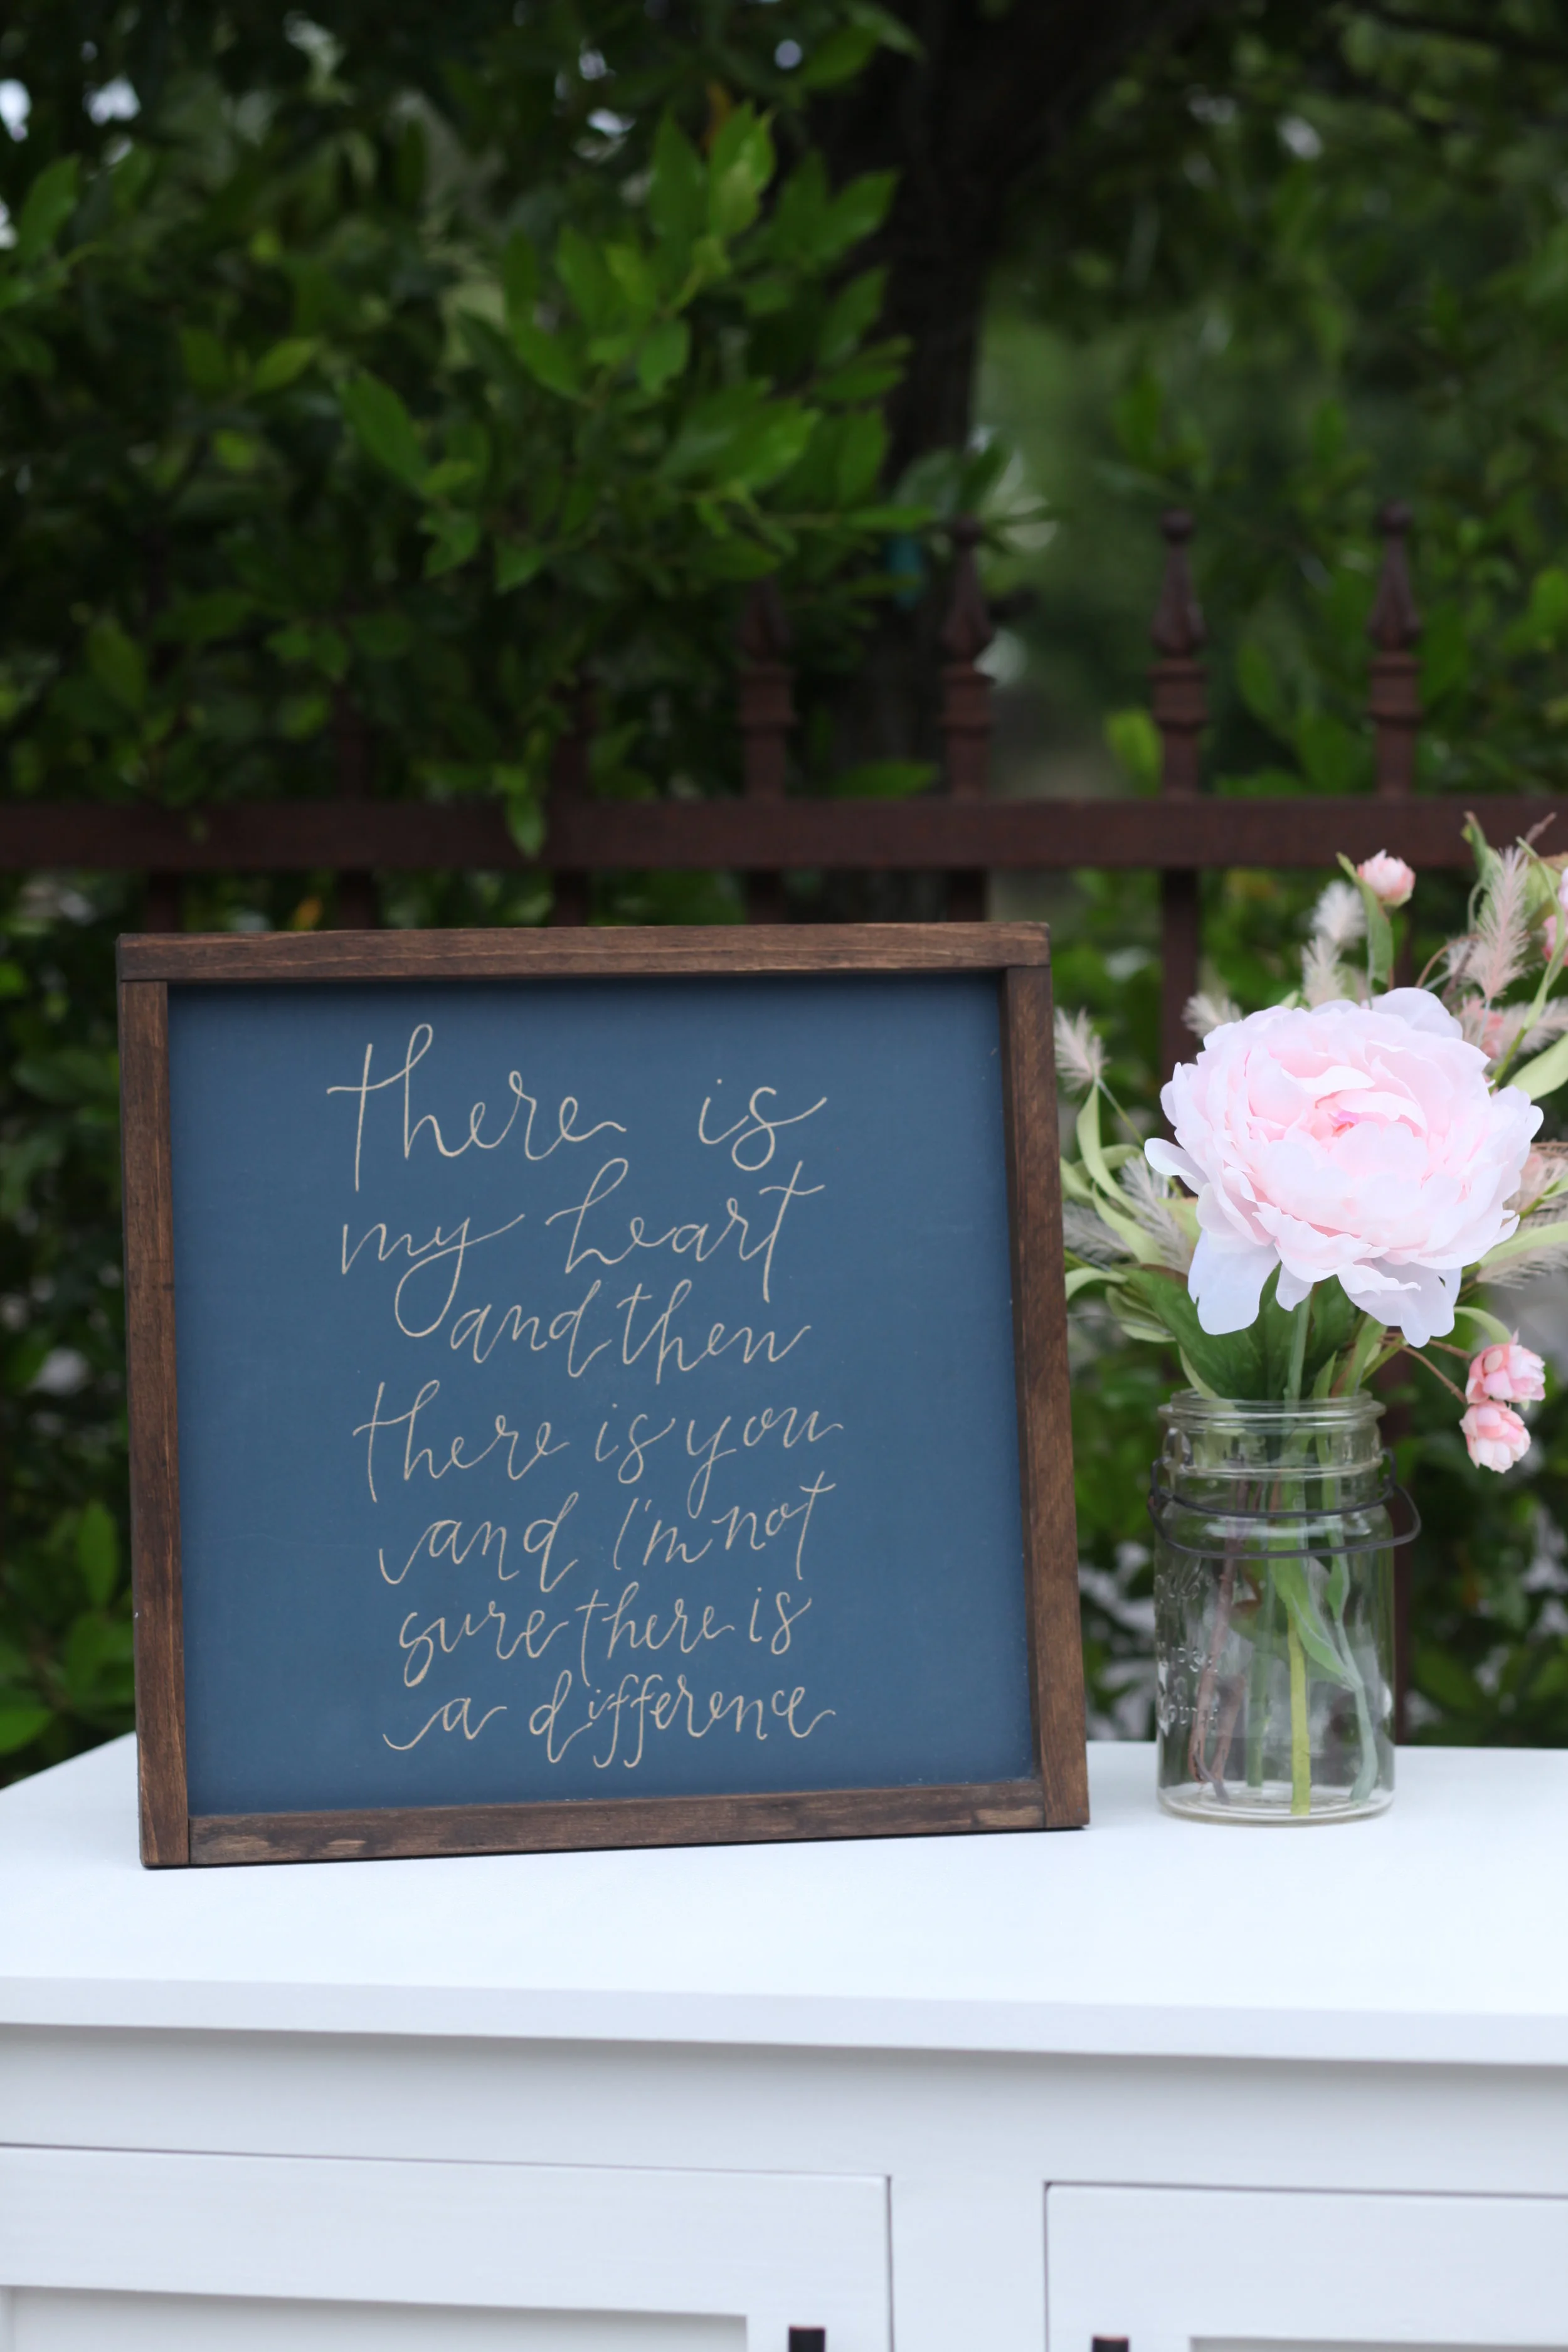 there is
my heart
and then
there is you
and i'm not
sure there is
a difference